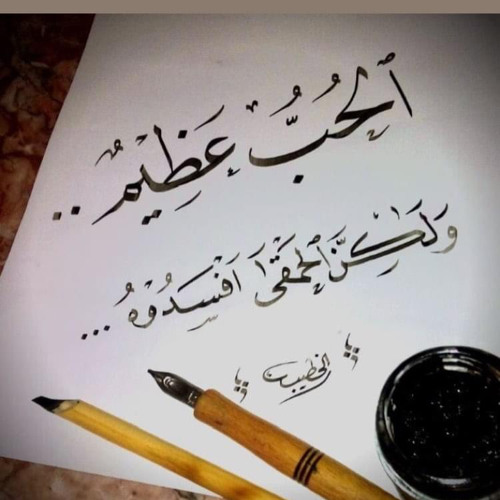 ٱلْحُبُّ عَظِيمٌ ..
وَلَكِنَّ ٱلْحَمْقَىٰ أَفْسَدُوهُ ...
الخطيب